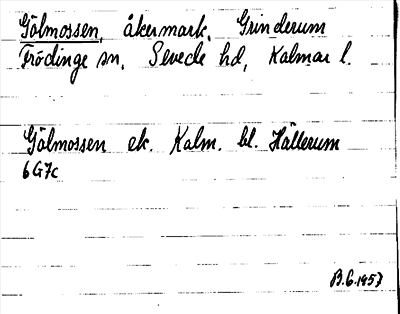 Gölmossen, åkermark, Grinderum
Frödinge sn, Sevede hd, Kalmar l.
Gölmossen ek. Kalm. bl. Hällerum
6G7c
B.G.1957